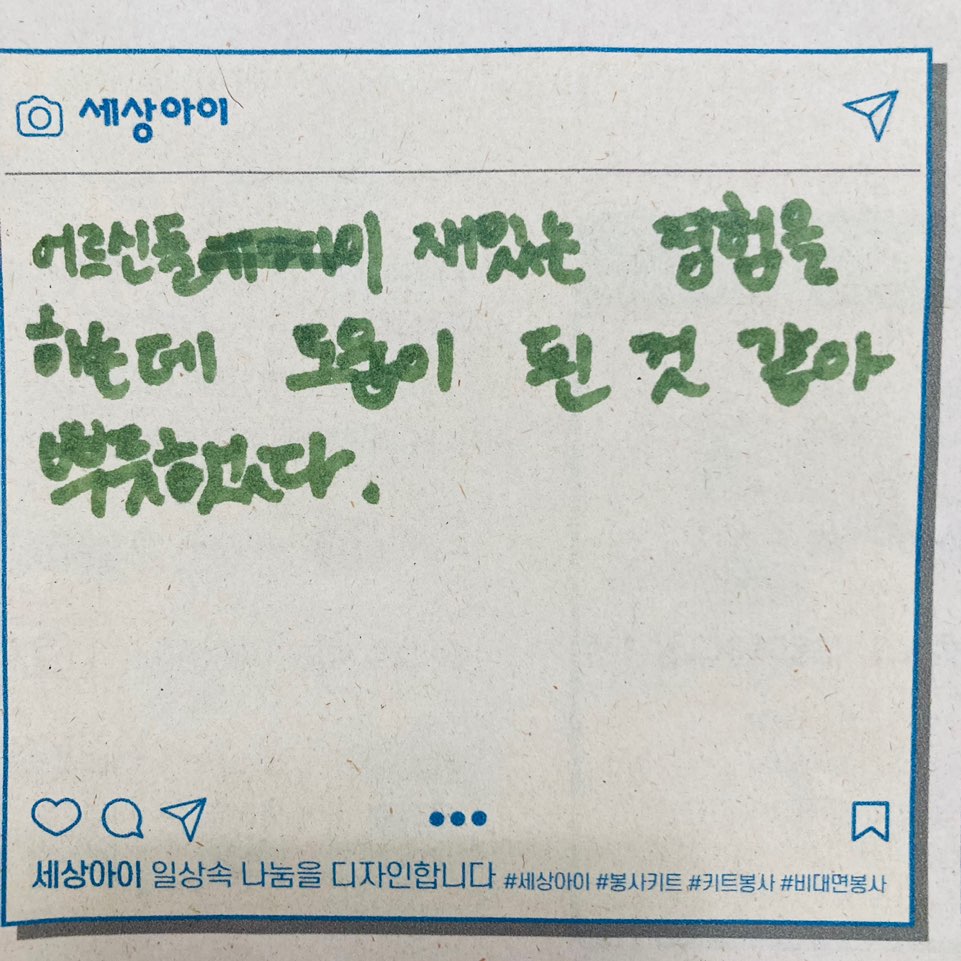 세상아이
어르신들이 재있는 경험을
하는데 도움이 된 것 같아
뿌듯했다.
세상아이 일상속 나눔을 디자인합니다 #세상아이 #봉사키트 #키트봉사 #비대면봉사